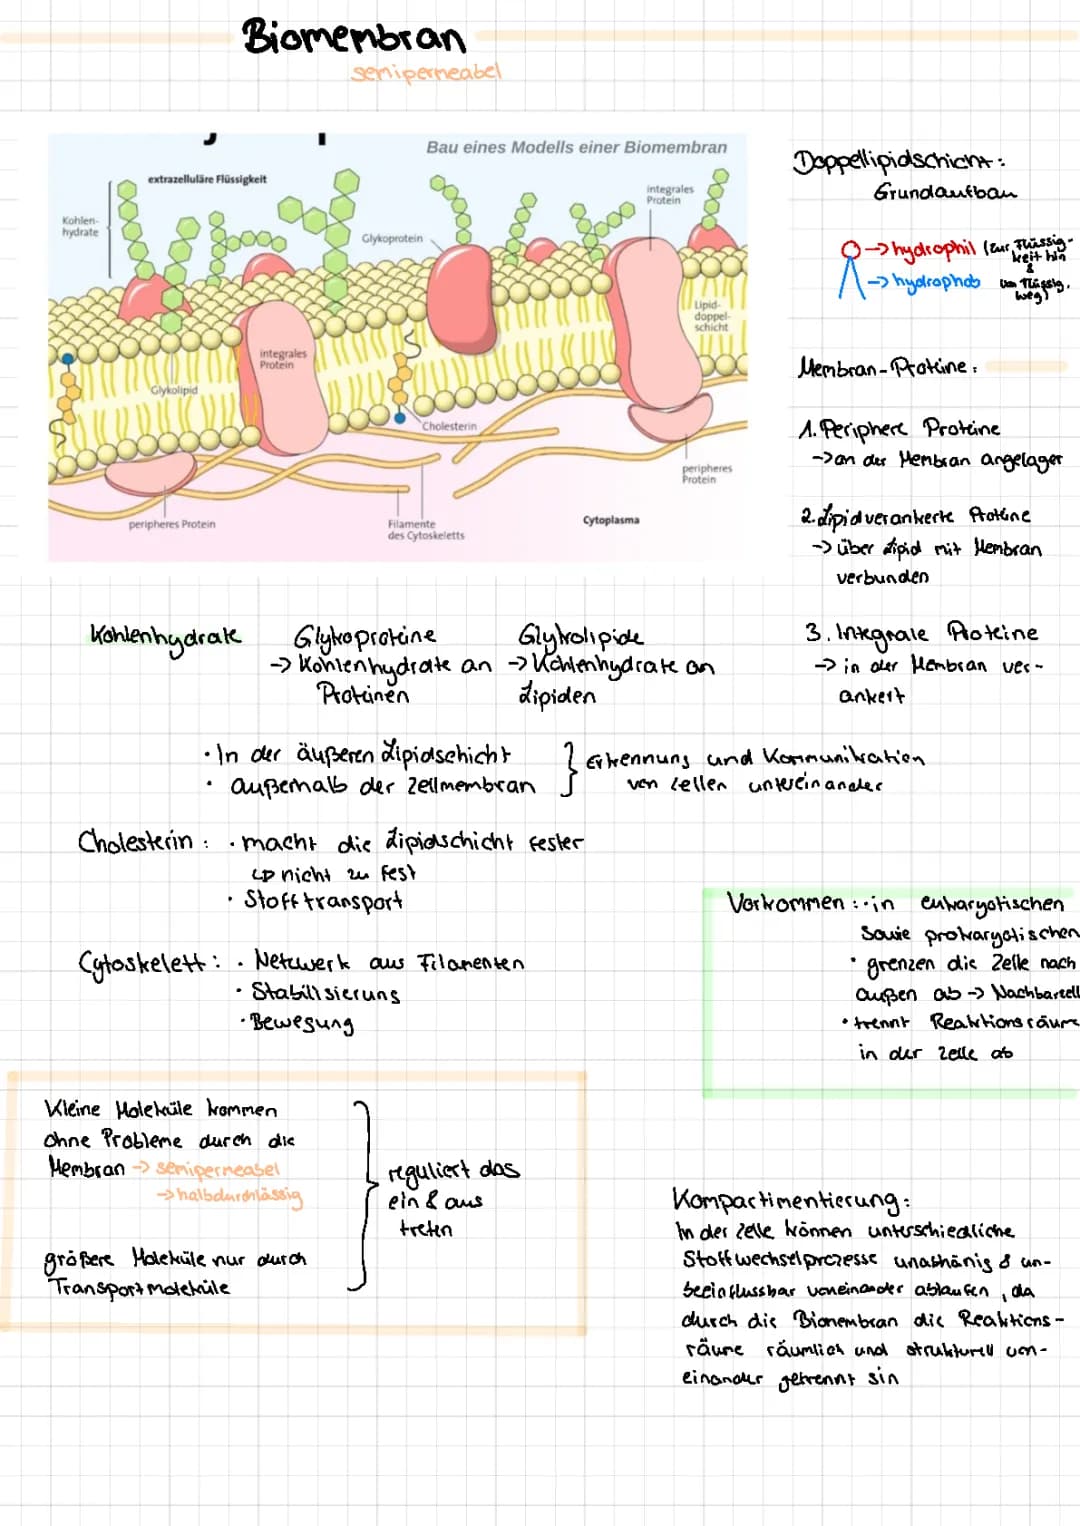 Biomembran
semipermeabel
Bau eines Modells einer Biomembran
extrazelluläre Flüssigkeit
Kohlen-
hydrate
Glykoprotein
integrales
Protein
Lipid-
doppel-
schicht
integrales
Protein
Glykolipid
Cholesterin
peripheres
Protein
peripheres Protein
Filamente
des Cytoskeletts
Cytoplasma
Doppellipidschicht:
Grundaufbau
-> hydrophil (zur Flüssig-
keit hin
&
-> hydrophob von Flüssig.
weg)
Membran-Proteine:
1. Periphere Proteine
-> an der Membran angelager
2. Lipidverankerte Proteine
-> über Lipid mit Membran
verbunden
3. Integrale Proteine
-> in der Membran ver-
ankert
Kohlenhydrate Glykoproteine Glykolipide
-> Kohlenhydrate an -> Kohlenhydrate an
Proteinen Lipiden
· In der äußeren Lipidschicht
· außerhalb der Zellmembran
} Erkennung und Kommunikation
von Zellen untereinander
Cholesterin: · macht die Lipidschicht fester
↳ nicht zu fest
· Stofftransport
Cytoskelett: · Netzwerk aus Filamenten
· Stabilisierung
· Bewegung
Vorkommen: · in eukaryotischen
sowie prokaryotischen
· grenzen die Zelle nach
außen ab -> Nachbarzell
· trennt Reaktionsräum
in der Zelle ab
Kleine Moleküle kommen
ohne Probleme durch die
Membran -> semipermeabel
-> halbdurchlässig
größere Moleküle nur durch
Transportmoleküle
reguliert das
ein & aus
treten
Kompartimentierung:
In der Zelle können unterschiedliche
Stoffwechselprozesse unabhänig & un-
beeinflussbar voneinander ablaufen, da
durch die Biomembran die Reaktions-
räume räumlich und strukturell von-
einander getrennt sin